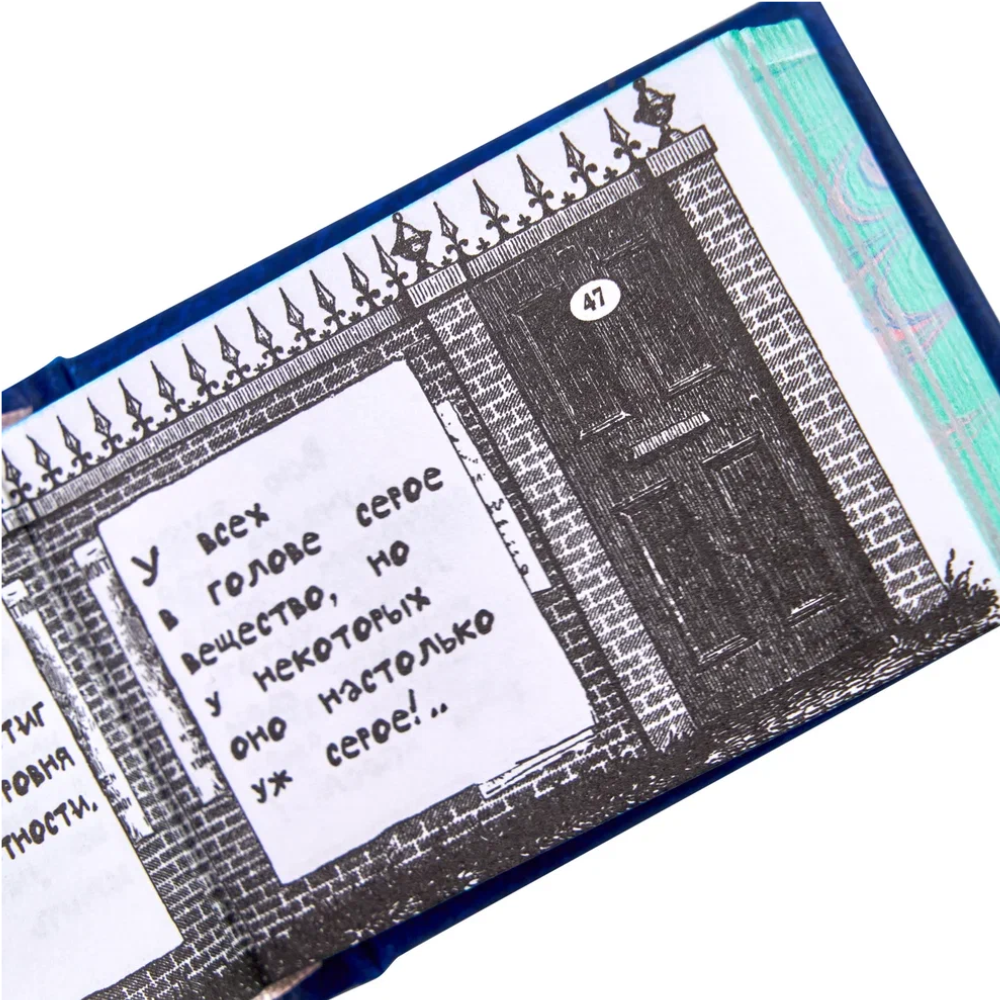 тиг
ровня
тности.
У всех
в голове серое
вещество, но
у некоторых
оно настолько
уж серое!..
47